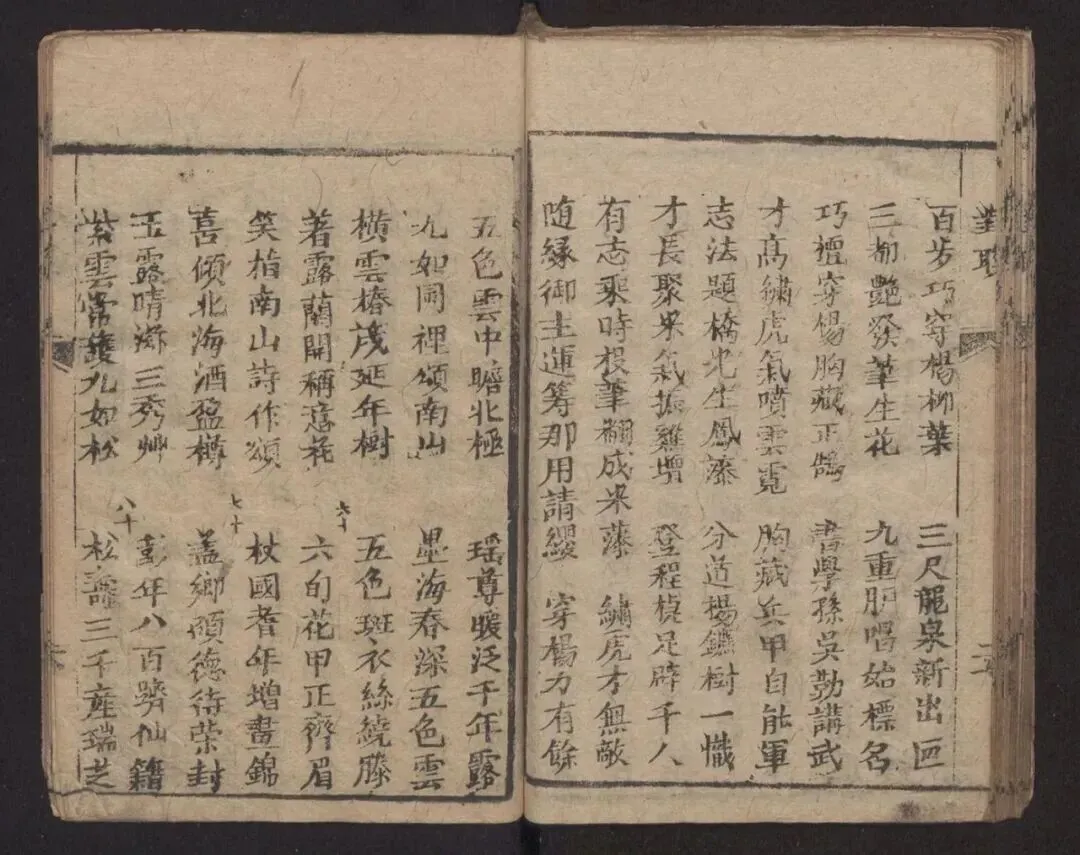 對聯
百步巧穿楊柳葉 三尺龍泉新出匣
三都艷發筆生花 九重胪唱始標名
巧擅穿楊胸藏正鵠 書學孫吳勤講武
才高繡虎氣噴雲霓 胸藏兵甲自能軍
志法題橋光生鳳藻 分道楊鑣樹一幟
才長聚米氣振雞壇 登程楨足辟千人
有志乘時投筆翻成米藻 繡虎才無敵
随緣御主運筹那用請纓 穿楊力有餘
五色雲中瞻北極 瑶尊暖泛千年露
九如圖裡頌南山 墨海春深五色雲
橫雲椿茂延年樹 五色斑衣絲繞膝
六十
著露蘭開稱意花 六旬花甲正齊眉
笑指南山詩作頌 杖國耆年增晝錦
七十
喜傾北海酒盈樽 盖鄉頎德待榮封
玉露晴滋三秀艸 彭年八百躋仙籍
八十
紫雲常護九如松 松壽三千產瑞芝